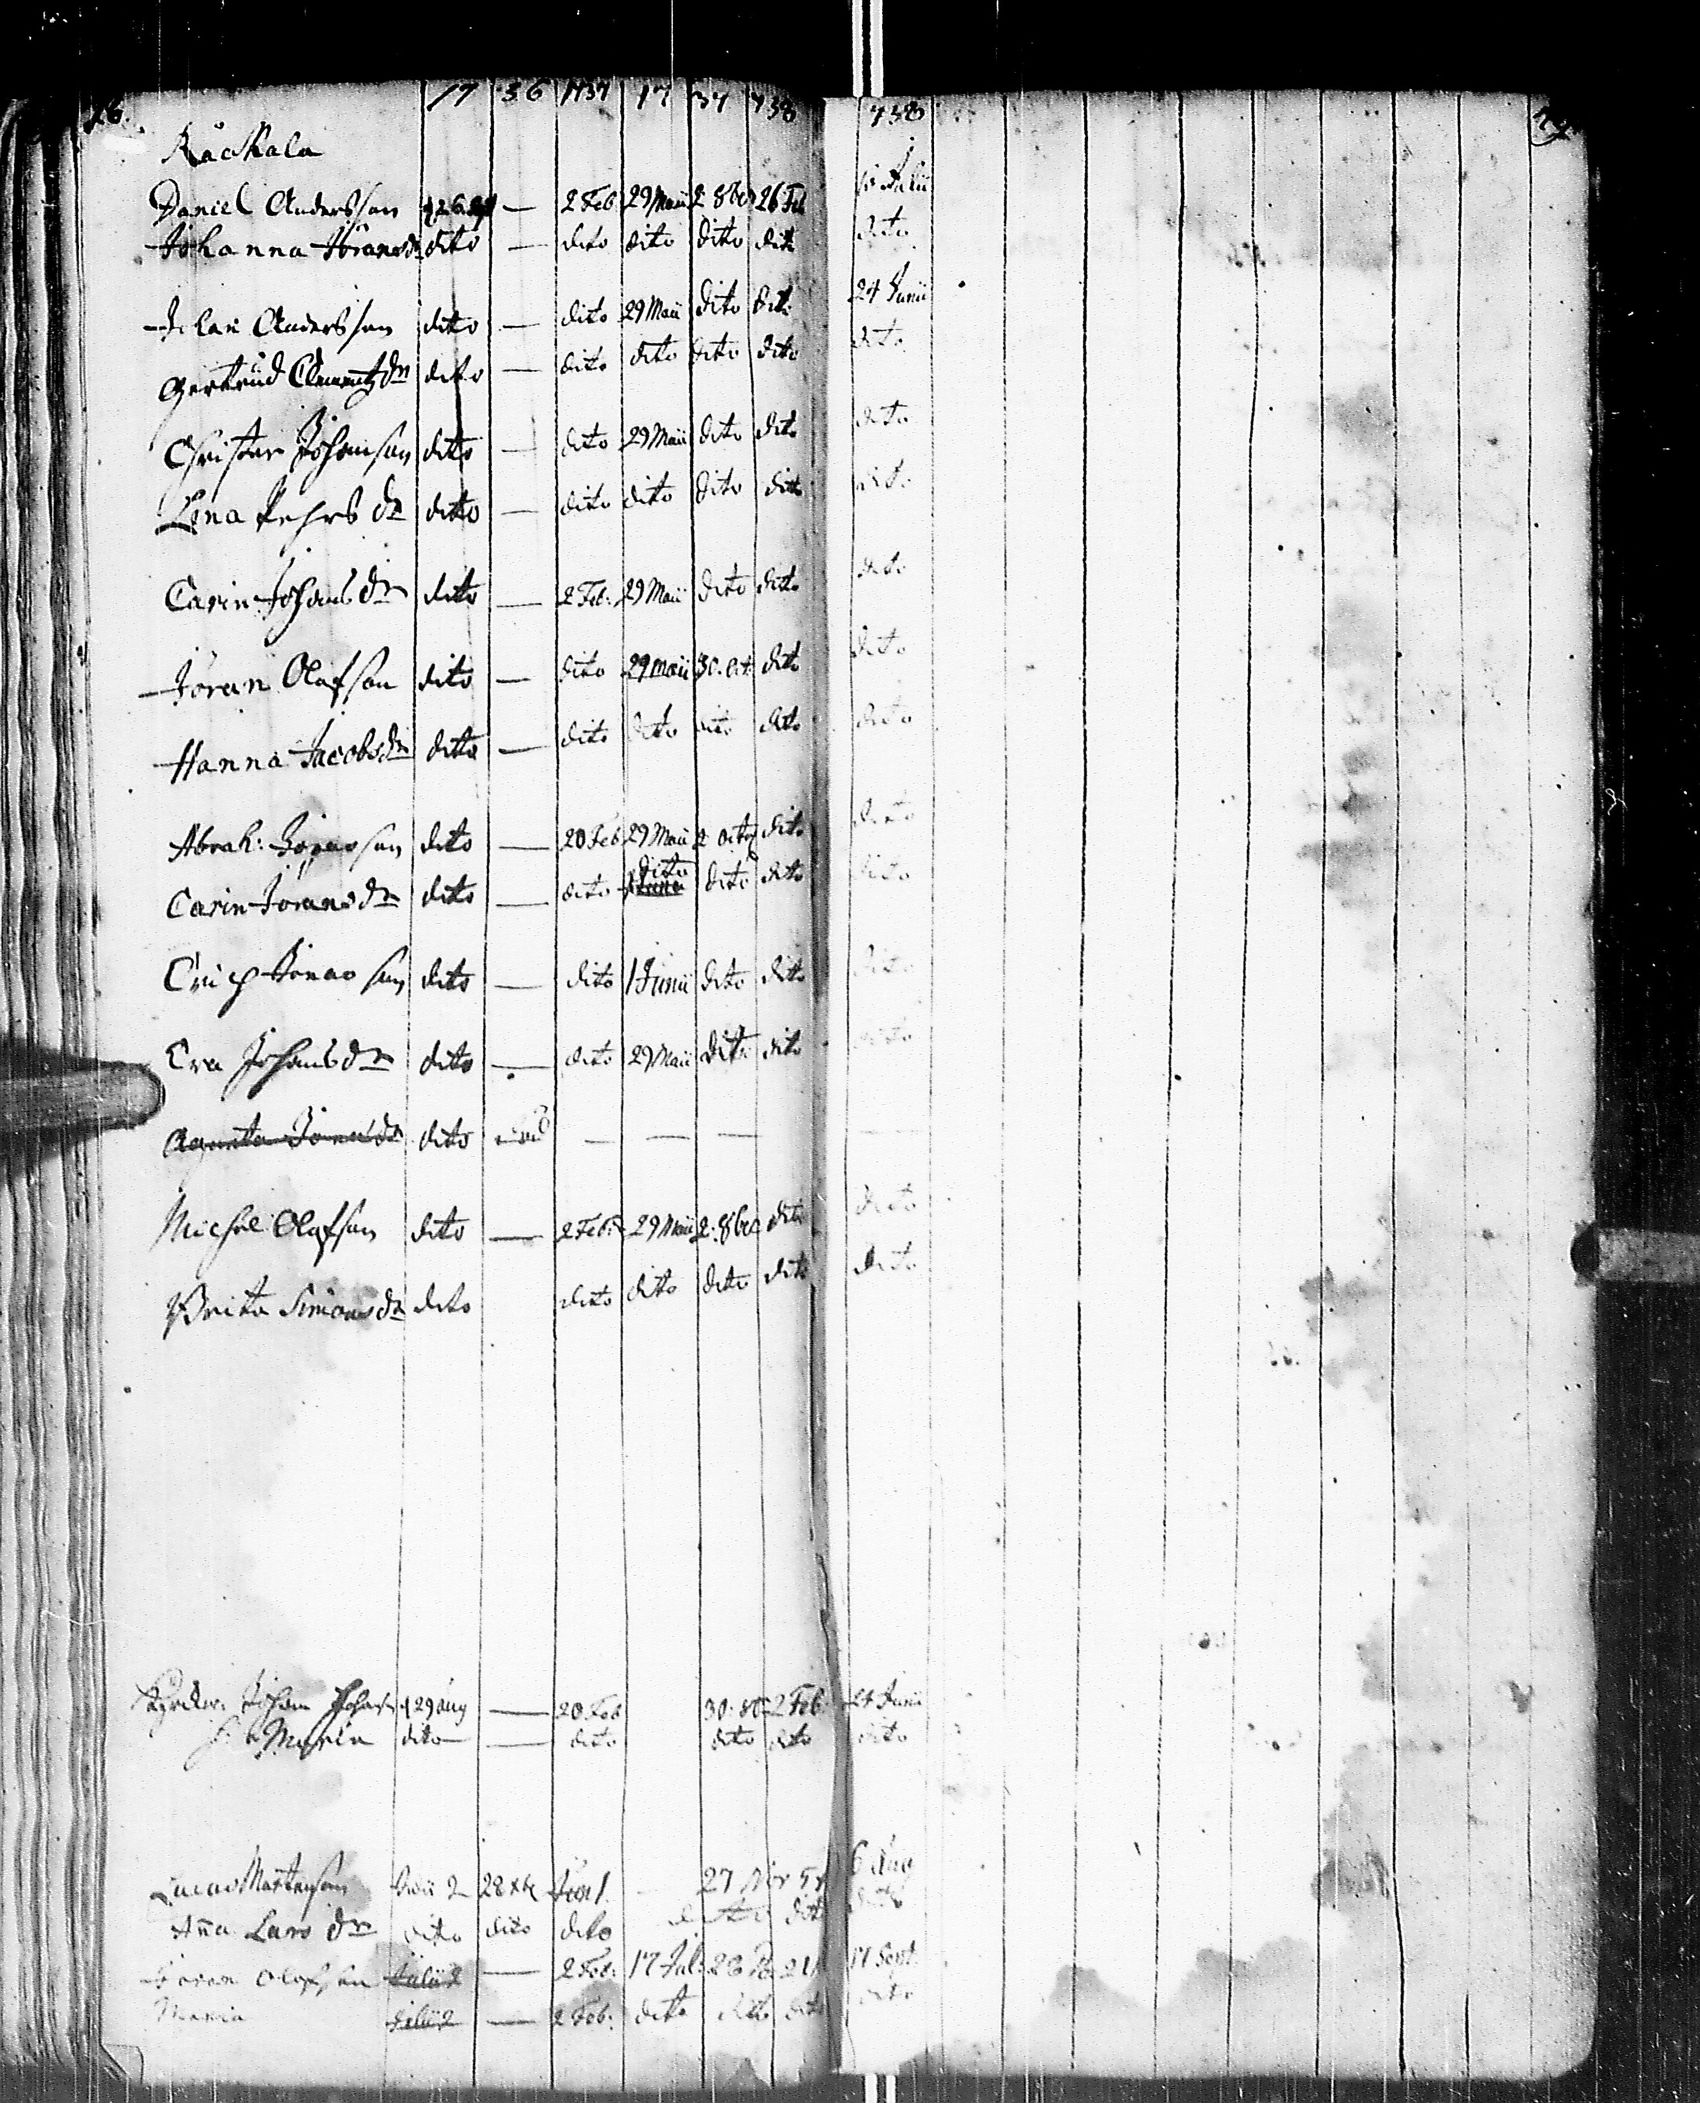 26. 17 36 1737 17 37 738 738
Räckala
Daniel Andersson — 2 Feb 29 Maii 2 8br 26 Feb Julii
Johanna Jöransdr dito — dito dito dito dito dito
Andersson dito — dito 29 Maii dito dito 24 Junii
Gertrud Clementzdr dito — dito dito dito dito dito
Christer Johansson dito — dito 29 Maii dito dito dito
Lena Pehrs dr dito — dito dito dito dito dito
Carin Johansdr dito — 2 Feb: 29 Maii dito dito dito
Jöran Olofson dito — dito 29 Maii 30. oct dito dito
Hanna Jacobsdr dito — dito dito dito dito dito
Abrah: son dito — 20 Feb 29 Maii 2 dito dito
Carin Jöransdr dito — dito dito dito dito dito
Erich son dito — dito 1 Junii dito dito dito
Eva Johansdr dito — dito 29 Maii dito dito dito
Agneta dr dito — — —
Michel Olofson dito — 2 Feb: 29 Maii 2. 8br dito dito
Brita Simonsdr dito dito dito dito dito dito
Johan 29 aug — 20 Feb 30. 2 Feb: 24 Junii
Maria dito — dito dito dito dito
Lucas Mårtenson 2 28 1. 27 6 Aug
Aña Lars dr dito dito dito dito dito dito
Jöran Olofson Julii 2 — 2 Feb: 17 Jul: 28 17 Sept.
Maria Julii 2 — 2 Feb: dito dito dito dito